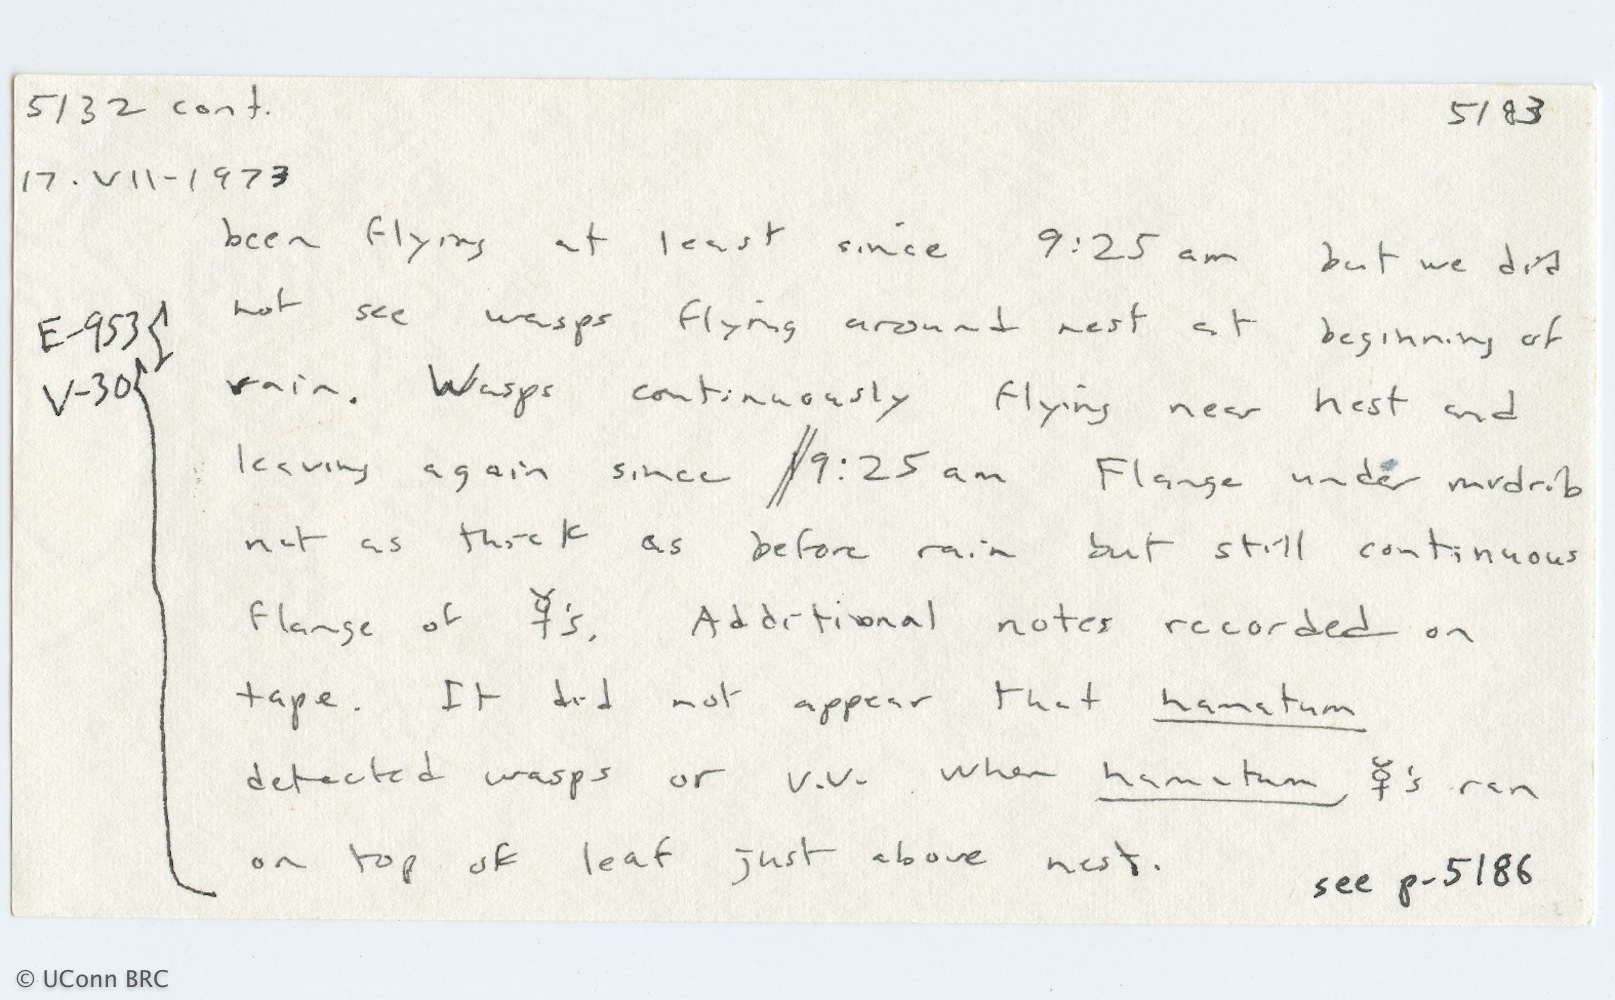 5132 cont.
5183
17.VII-1973
been flying at least since 9:25 am but we did
E-953{
not see wasps flying around nest at beginning of
V-30{
rain. Wasps continuously flying near nest and
leaving again since //9:25 am Flange under midrib
not as thick as before rain but still continuous
flange of ☿'s. Additional notes recorded on
tape. It did not appear that hamatum
detected wasps or v.v. when hamatum ☿'s ran
on top of leaf just above nest.
see p-5186
© UConn BRC